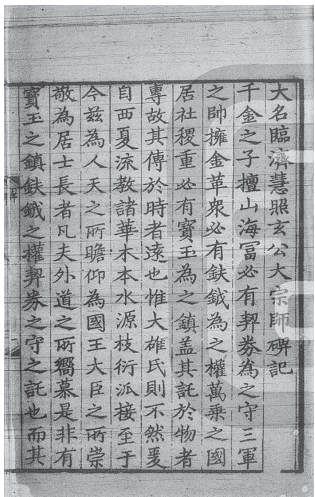 大名臨濟慧照玄公大宗師碑記
千金之子擅山海冨必有契券為之守三軍
之帥擁金革衆必有鈇鉞為之權萬乗之國
居社稷重必有寳玉為之鎮盖其託於物者
專故其傳於時者逺也惟大雄氏則不然爰
自西夏流教諸華木本水源枝衍派接至于
今兹為人天之所瞻仰為國王大臣之所崇
敬為居士長者凡夫外道之所嚮慕是非有
寳玉之鎮鈇鉞之權契券之守之託也而其